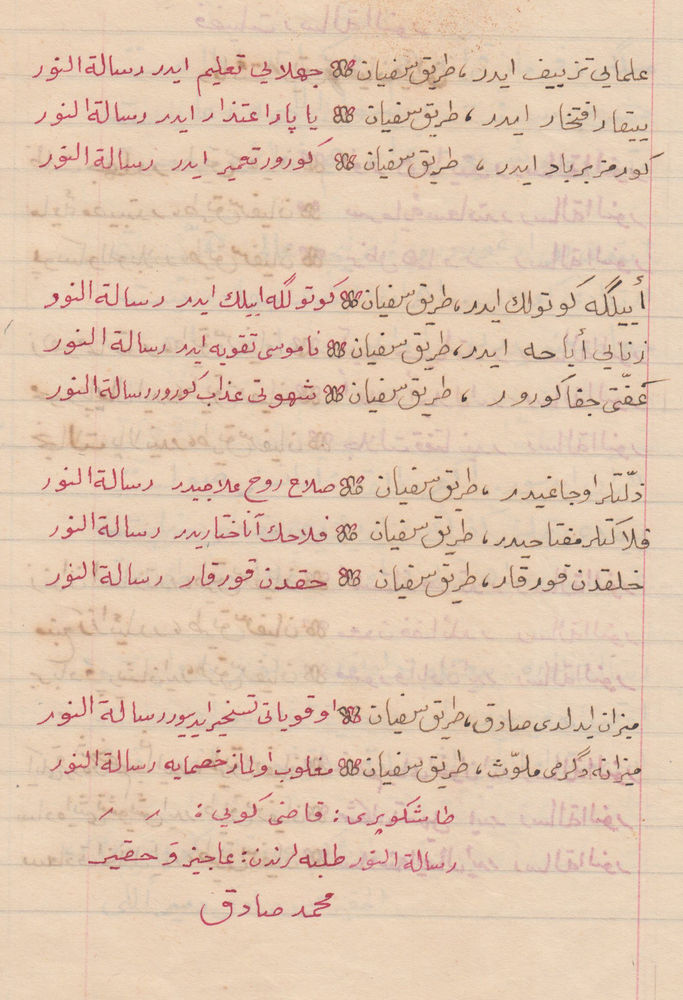 علمايى تزييف ايدر، طريق سفيان ❀ جهلايى تعليم ايدر رسالة النور
بيتقار افتخار ايدر، طريق سفيان ❀ يا پار اعتذار ايدر رسالة النور
كورمز برباد ايدر، طريق سفيان ❀ كورور تعمير ايدر رسالة النور
أييلگه كوتولك ايدر، طريق سفيان ❀ كوتولگه اييلك ايدر رسالة النور
زنايى أباحه ايدر، طريق سفيان ❀ ناموسى تقويه ايدر رسالة النور
عفّتى جفا كورور، طريق سفيان ❀ شهوتى عذاب كورور رسالة النور
ذلّتلر اوجاغيدر، طريق سفيان ❀ صلاح روح علاجيدر رسالة النور
فلاكتلر مفتاحيدر، طريق سفيان ❀ فلاحك آناختاريدر رسالة النور
خلقدن قورقار، طريق سفيان ❀ حقدن قورقار رسالة النور
ميزان ايدلدى صادق، طريق سفيان ❀ اوقوياتى تسخير ايدييور رسالة النور
ميزانه دگرمى ملوّث، طريق سفيان ❀ مغلوب اولماز خصمايه رسالة النور
طاشكوپرى: قاضى كويى:
رسالة النور طلبه لرندن: عاجيز و حقير
محمد صادق